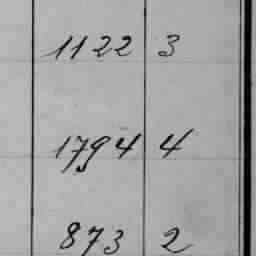 1122 3
1794 4
873 2